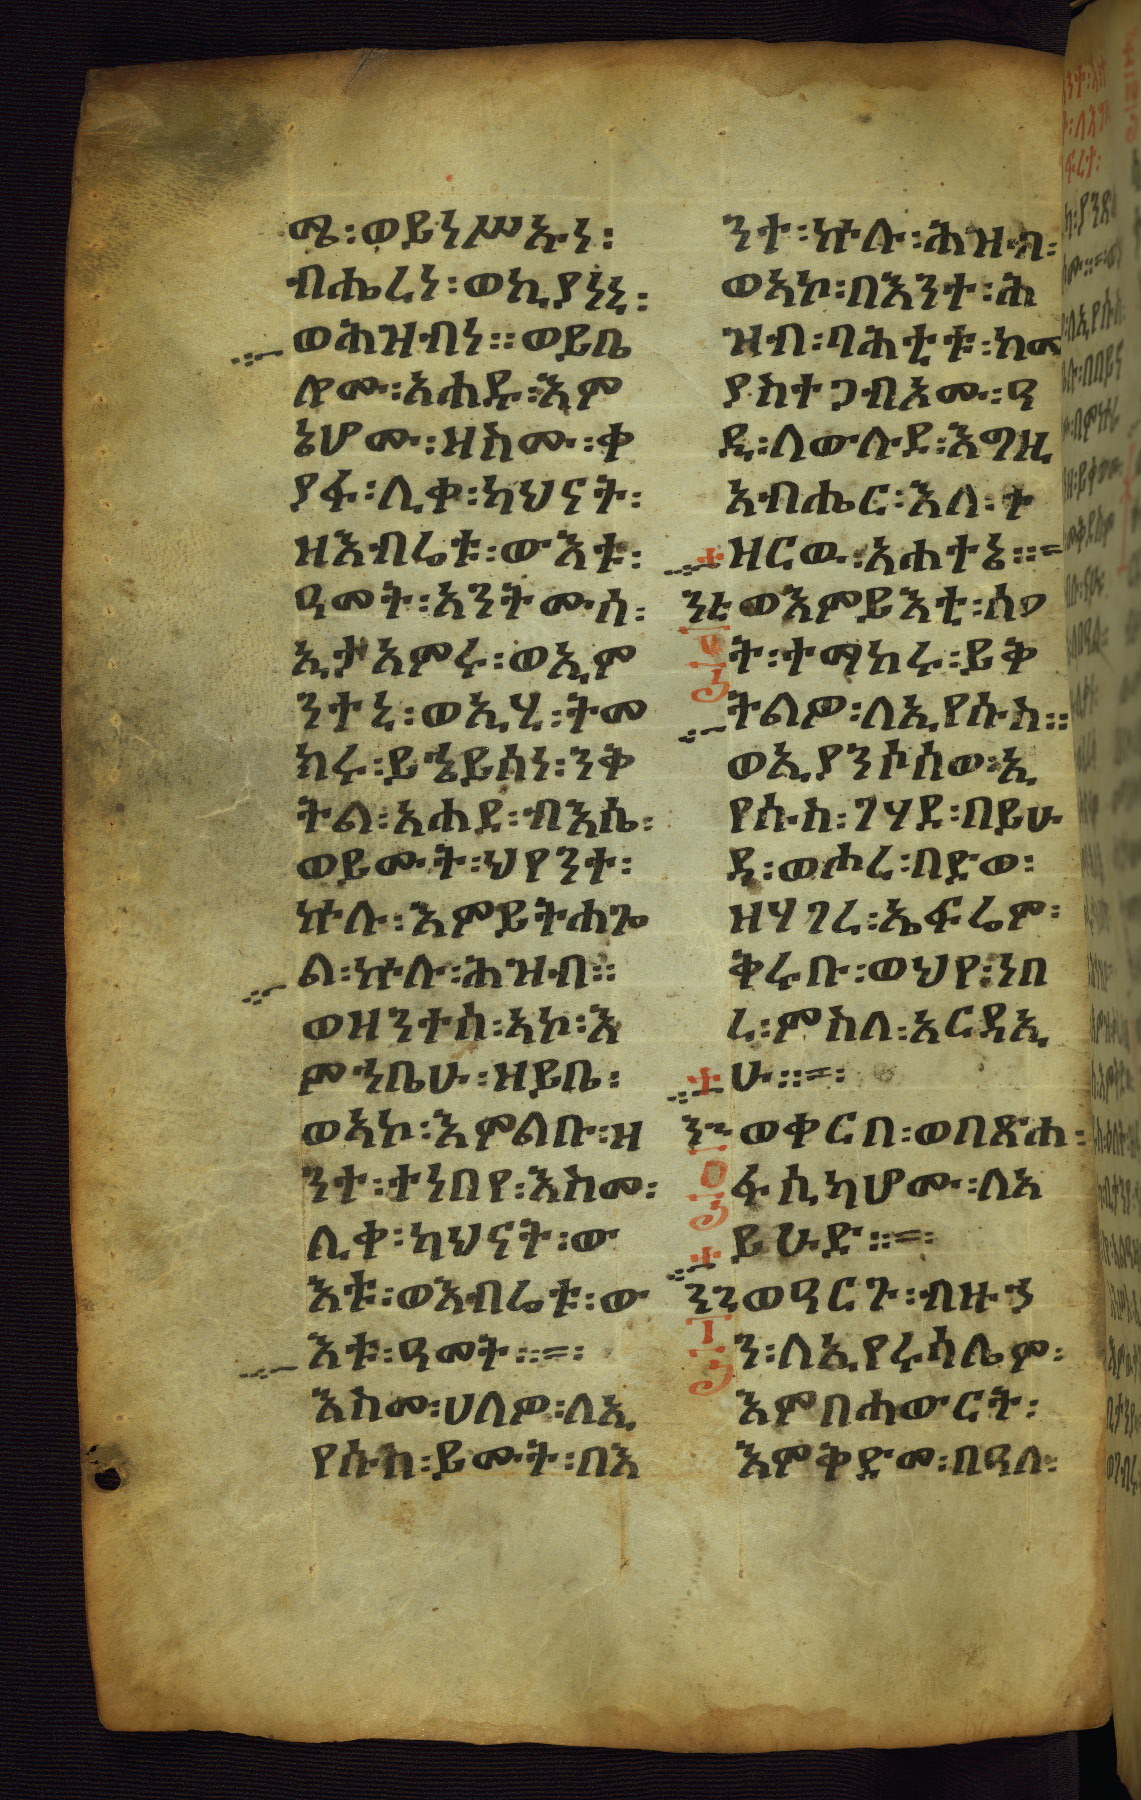 ሜ፡ወይነሥኡነ፡
ብሔረነ፡ወኪያነኒ፡
ወሕዝብነ፡፡ወይቤ
ሎሙ፡አሐዱ፡እም
ኔሆሙ፡ዘስሙ፡ቀ
ያፋ፡ሊቀ፡ካህናት፡
ዘእብሬቱ፡ውእቱ፡
ዓመት፡አንትሙሰ፡
ኢታአምሩ፡ወኢም
ንተኒ፡ወኢሂ፡ትመ
ክሩ፡ይኄይሰነ፡ንቅ
ትል፡አሐደ፡ብእሴ፡
ወይሙት፡ህየንተ፡
ኵሉ፡እምይትሐጐ
ል፡ኵሉ፡ሕዝብ፡፡
ወዘንተሰ፡አኮ፡እ
ምኀቤሁ፡ዘይቤ፡
ወአኮ፡እምልቡ፡ዘ
ንተ፡ተነበየ፡እስመ፡
ሊቀ፡ካህናት፡ው
እቱ፡ወእብሬቱ፡ው
እቱ፡ዓመት፡፡=፡
እስመ፡ሀለዎ፡ለኢ
የሱስ፡ይሙት፡በእ
ንተ፡ኵሉ፡ሕዝብ፡
ወአኮ፡በእንተ፡ሕ
ዝብ፡ባሕቲቱ፡ከመ
ያስተጋብኦሙ፡ዓ
ዲ፡ለውሉደ፡እግዚ
አብሔር፡እለ፡ተ
ዝርዉ፡አሐተኔ፡፡=
ወእምይእቲ፡ሰዓ
ት፡ተማከሩ፡ይቅ
ትልዎ፡ለኢየሱስ፡፡
ወኢያንሶሰወ፡ኢ
የሱስ፡ገሃደ፡በይሁ
ዳ፡ወሖረ፡በድወ፡
ዘሃገረ፡ኤፍሬም፡
ቅሩቡ፡ወህየ፡ነበ
ረ፡ምስለ፡አርዳኢ
ሁ፡፡=፡
ወቀርበ፡ወበጽሐ፡
ፋሲካሆሙ፡ለአ
ይሁድ፡፡=፡
ወዓርጉ፡ብዙኃ
ን፡ለኢየሩሳሌም፡
እምበሐውርት፡
እምቅድመ፡በዓለ፡